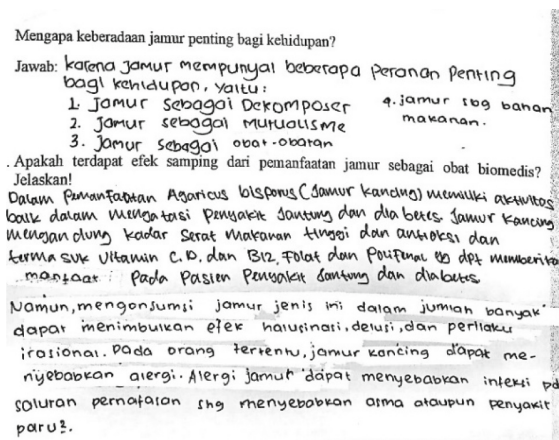 Mengapa keberadaan jamur penting bagi kehidupan?
Jawab: karena jamur mempunyai beberapa peranan penting
bagi kehidupan, yaitu:
1. Jamur sebagai Dekomposer
2. Jamur sebagai Mutualisme
3. Jamur sebagai obat-obatan
4. jamur sbg bahan
makanan.
. Apakah terdapat efek samping dari pemanfaatan jamur sebagai obat biomedis?
Jelaskan!
Dalam pemanfaatan Agaricus bisporus (Jamur kancing) memiliki aktivitas
baik dalam mengatasi penyakit jantung dan diabetes. Jamur kancing
mengandung kadar serat makanan tinggi dan antioksi dan
termasuk vitamin C, D, dan B12, Folat dan Polifenal yg dpt memberika
manfaat pada pasien penyakit jantung dan diabetes
Namun, mengonsumsi jamur jenis ini dalam jumlah banyak
dapat menimbulkan efek halusinasi, delusi, dan perilaku
irasional. Pada orang tertentu, jamur kancing dapat me-
nyebabkan alergi. Alergi jamur dapat menyebabkan infeksi pd
saluran pernafasan shg menyebabkan asma ataupun penyakit
paru².